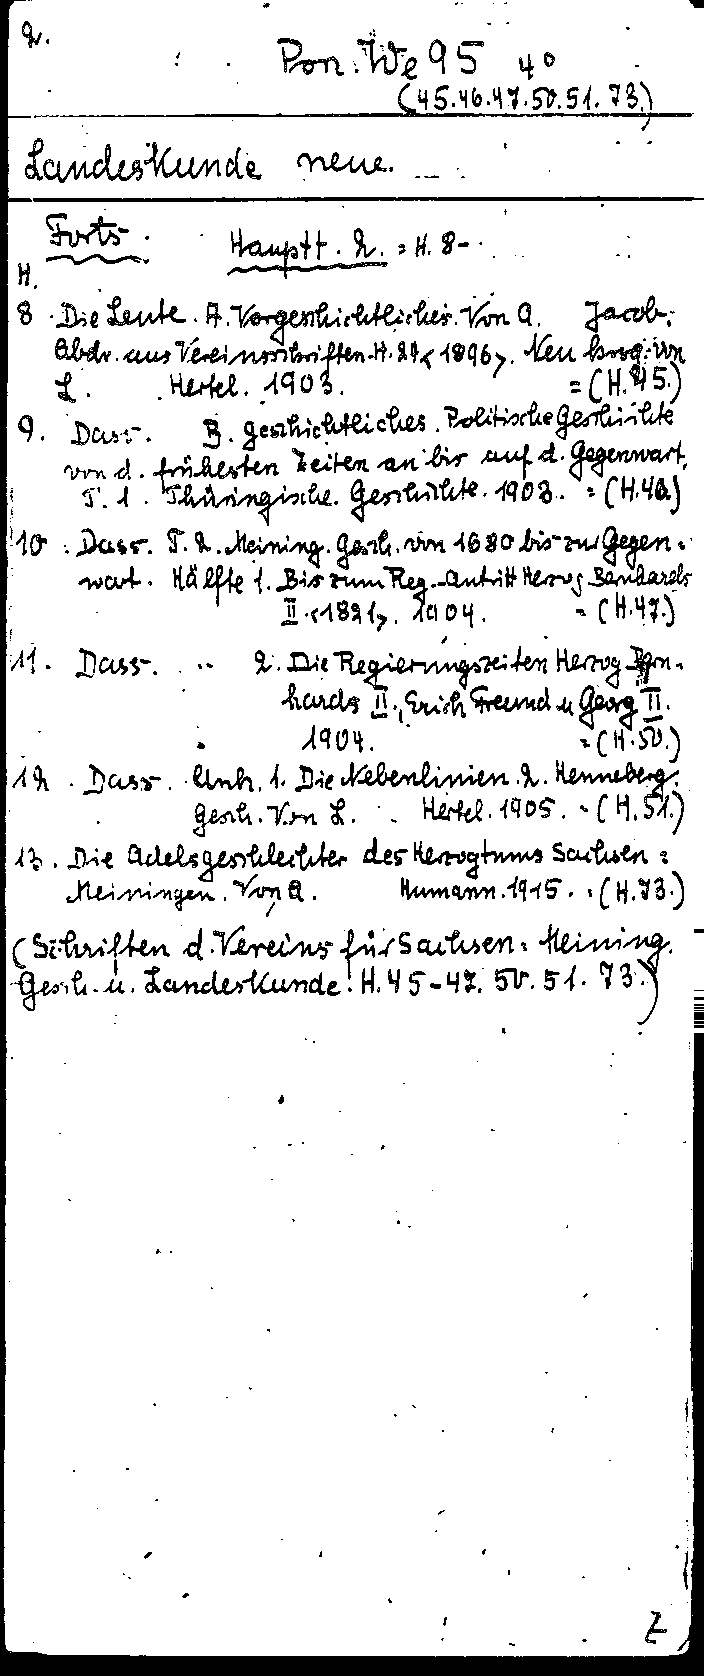 2.
Pon. We 95 4°
(45.46.47.50.51.73.)
Landeskunde neue.
Forts. Hauptt. 2. = H. 8-
H.
8. Die Leute. A. Vorgeschichtliches. Von A. Jacob.
Abdr. aus Vereinsschriften. H. 24 <1896>. Neu hrsg. von
L. Hertel. 1903. = (H. 45.)
9. Dass. B. Geschichtliches. Politische Geschichte
von d. frühesten Zeiten an bis auf d. Gegenwart.
T. 1. Thüringische Geschichte. 1903. = (H. 46.)
10. Dass. T. 2. Meining. Gesch. von 1680 bis zur Gegen=
wart. Hälfte 1. Bis zum Reg.-Antritt Herzog Bernhards
II. <1821>. 1904. = (H. 47.)
11. Dass. " 2. Die Regierungszeiten Herzog Bern=
hards II., Erich Freund u. Georg II.
1904. = (H. 50.)
12. Dass. Anh. 1. Die Nebenlinien. 2. Henneberg.
Gesch. Von L. Hertel. 1905. = (H. 51.)
13. Die Adelsgeschlechter des Herzogtums Sachsen=
Meiningen. Von A. Humann. 1915. = (H. 73.)
(Schriften d. Vereins für Sachsen=Meining.
Gesch. u. Landeskunde. H. 45-47. 50. 51. 73.)